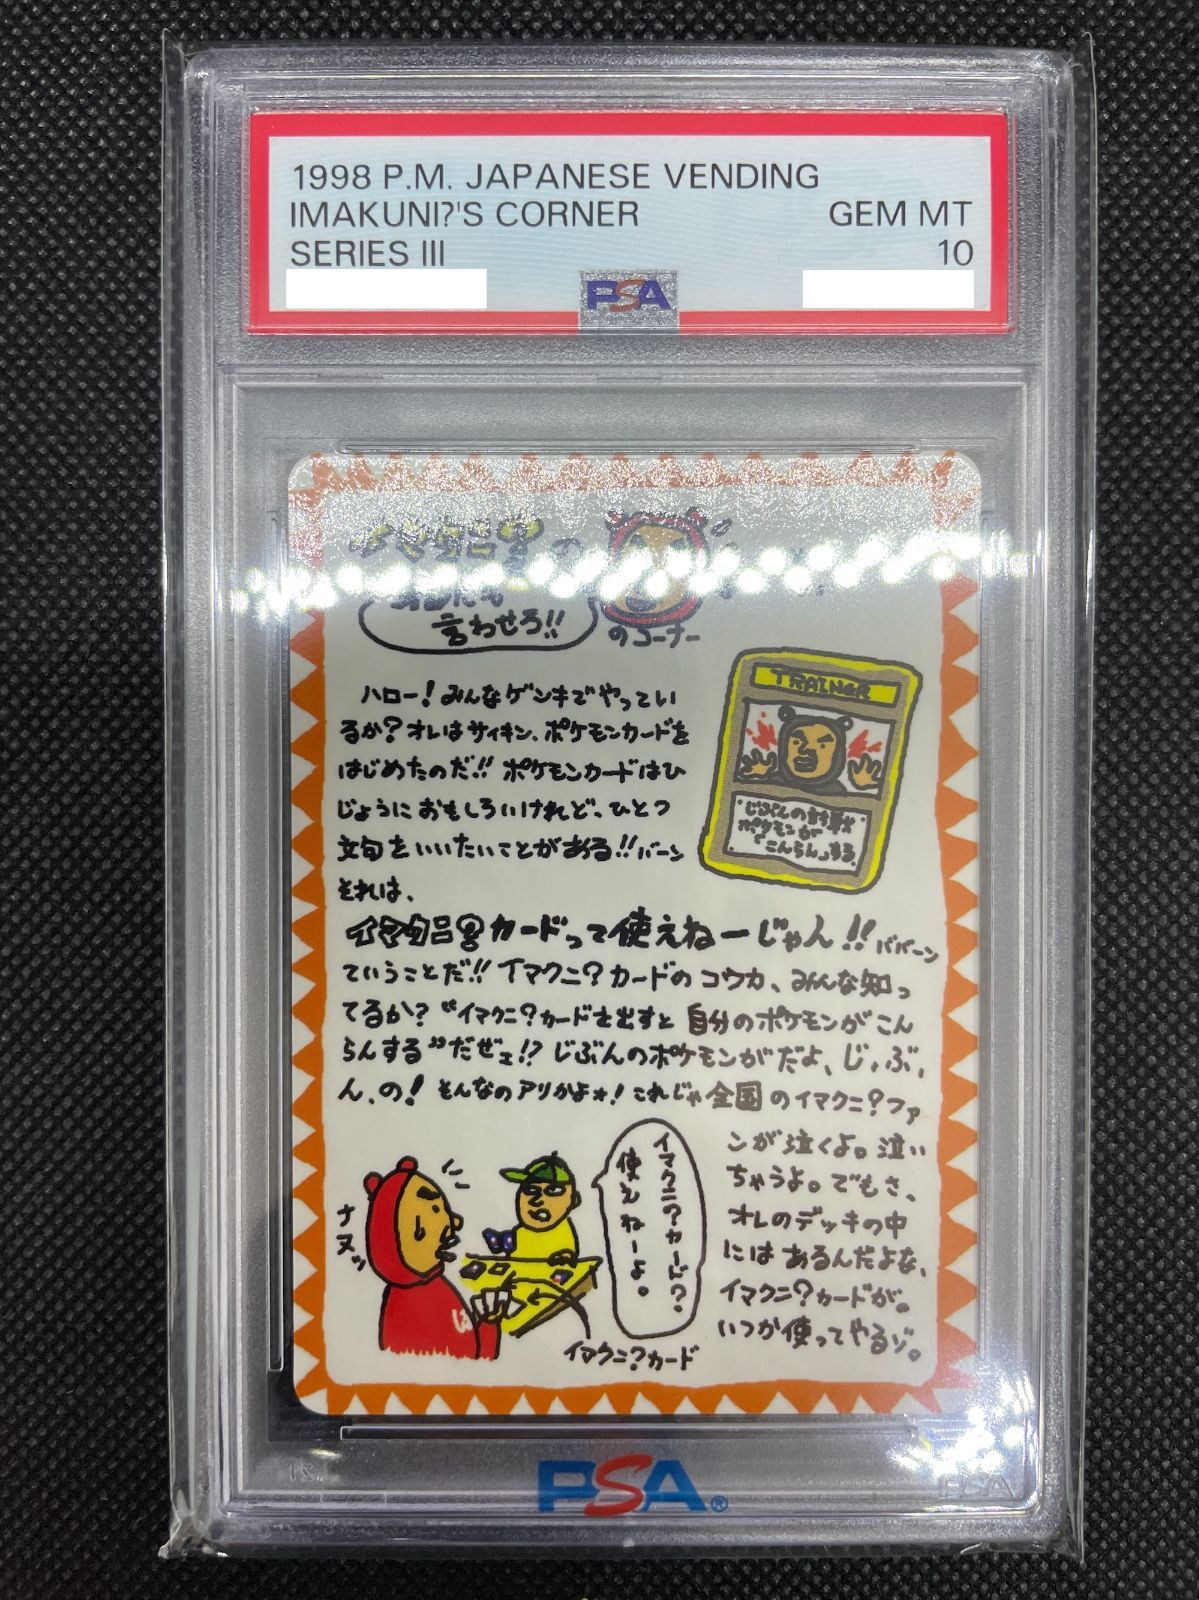 1998 P.M. JAPANESE VENDING
IMAKUNI?'S CORNER GEM MT
SERIES III 10
PSA
イマクニ?の
言わせろ!!
のコーナー
TRAINER
じぶんの対戦
ポケモンが
「こんらん」する。
ハロー!みんなゲンキでやってい
るか?オレはサイキン、ポケモンカードを
はじめたのだ!!ポケモンカードはひ
じょうにおもしろいけれど、ひとつ
文句をいいたいことがある!!バーン
それは、
イマクニ?カードって使えねーじゃん!!ババーン
ていうことだ!!イマクニ?カードのコウカ、みんな知っ
てるか?"イマクニ?カードを出すと自分のポケモンがこん
らんする"だぜェ!?じぶんのポケモンがだよ、じ、ぶ、
ん、の!そんなのアリかよォ!これじゃ全国のイマクニ?ファ
ンが泣くよ。泣い
ちゃうよ。でもさ、
オレのデッキの中
にはあるんだよな、
イマクニ?カードが。
いつか使ってやるゾ。
イマクニ?カード?
使えねーよ。
ナヌッ
イマクニ?カード
PSA®
PSA